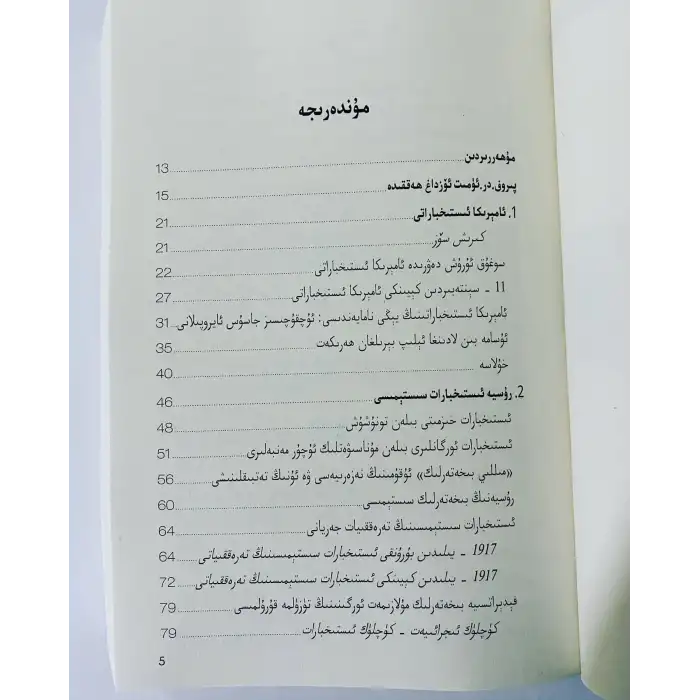 مۇندەرىجە
مۇھەررىردىن 13
پىروف.در.ئۈمىت ئۆزداغ ھەققىدە 15
1. ئامېرىكا ئىستىخباراتى 21
كىرىش سۆز 21
سوغۇق ئۇرۇش دەۋرىدە ئامېرىكا ئىستىخباراتى 22
11 - سېنتەبىردىن كېيىنكى ئامېرىكا ئىستىخباراتى 27
ئامېرىكا ئىستىخباراتىنىڭ يېڭى نامايەندىسى: ئۇچقۇچىسىز جاسۇس ئايروپىلانى 31
ئۇسامە بىن لادىنغا ئېلىپ بېرىلغان ھەرىكەت 35
خۇلاسە 40
2. رۇسىيە ئىستىخبارات سىستېمىسى 46
ئىستىخبارات خىزمىتى بىلەن تونۇشۇش 48
ئىستىخبارات ئورگانلىرى بىلەن مۇناسىۋەتلىك ئۇچۇر مەنبەلىرى 51
«مىللىي بىخەتەرلىك» ئۇقۇمىنىڭ نەزەرىيەسى ۋە ئۇنىڭ تەتبىقلىنىشى 56
رۇسىيەنىڭ بىخەتەرلىك سىستېمىسى 60
ئىستىخبارات سىستېمىسىنىڭ تەرەققىيات جەريانى 64
1917 - يىلىدىن بۇرۇنقى ئىستىخبارات سىستېمىسىنىڭ تەرەققىياتى 64
1917 - يىلىدىن كېيىنكى ئىستىخبارات سىستېمىسىنىڭ تەرەققىياتى 72
فېدېراتسىيە بىخەتەرلىك مۇلازىمەت ئورگىنىنىڭ تۈزۈلمە قۇرۇلمىسى 79
كۈچلۈك ئىجرائىيەت - كۈچلۈك ئىستىخبارات 79
5